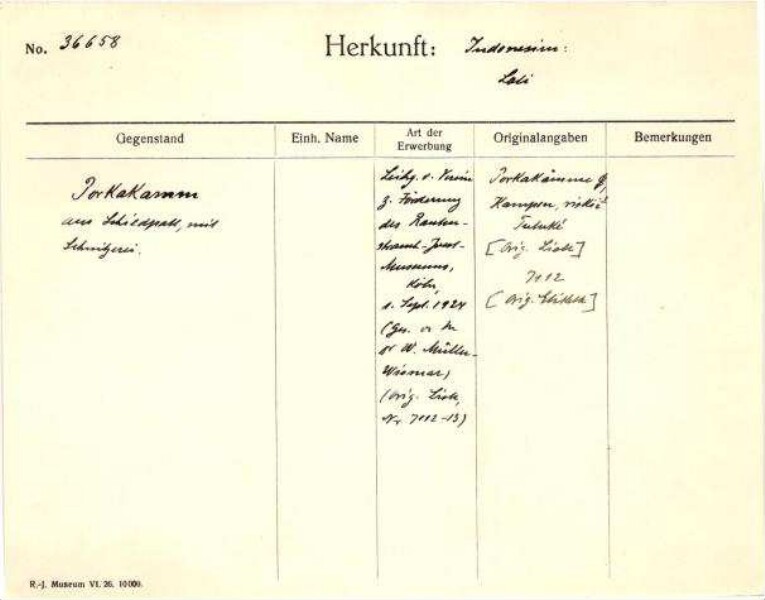 No. 36658
Herkunft: Indonesien:
Leti
Gegenstand
Einh. Name
Art der
Erwerbung
Originalangaben
Bemerkungen
Porkakamm
aus Schildpatt, mit
Schnitzerei.
Leihg. d. Verein
z. Förderung
des Rauten-
strauch-Joest-
Museums,
Köln,
d. Sept. 1924
(Ges. v.
Dr W. Müller-
Wismar)
(Orig. Liste,
Nr. 7112-13)
Porkakämme
Kampen,
Tutuké
[Orig. Liste]
7112
[Orig. Etikett]
R.-J. Museum VI. 26. 10000.